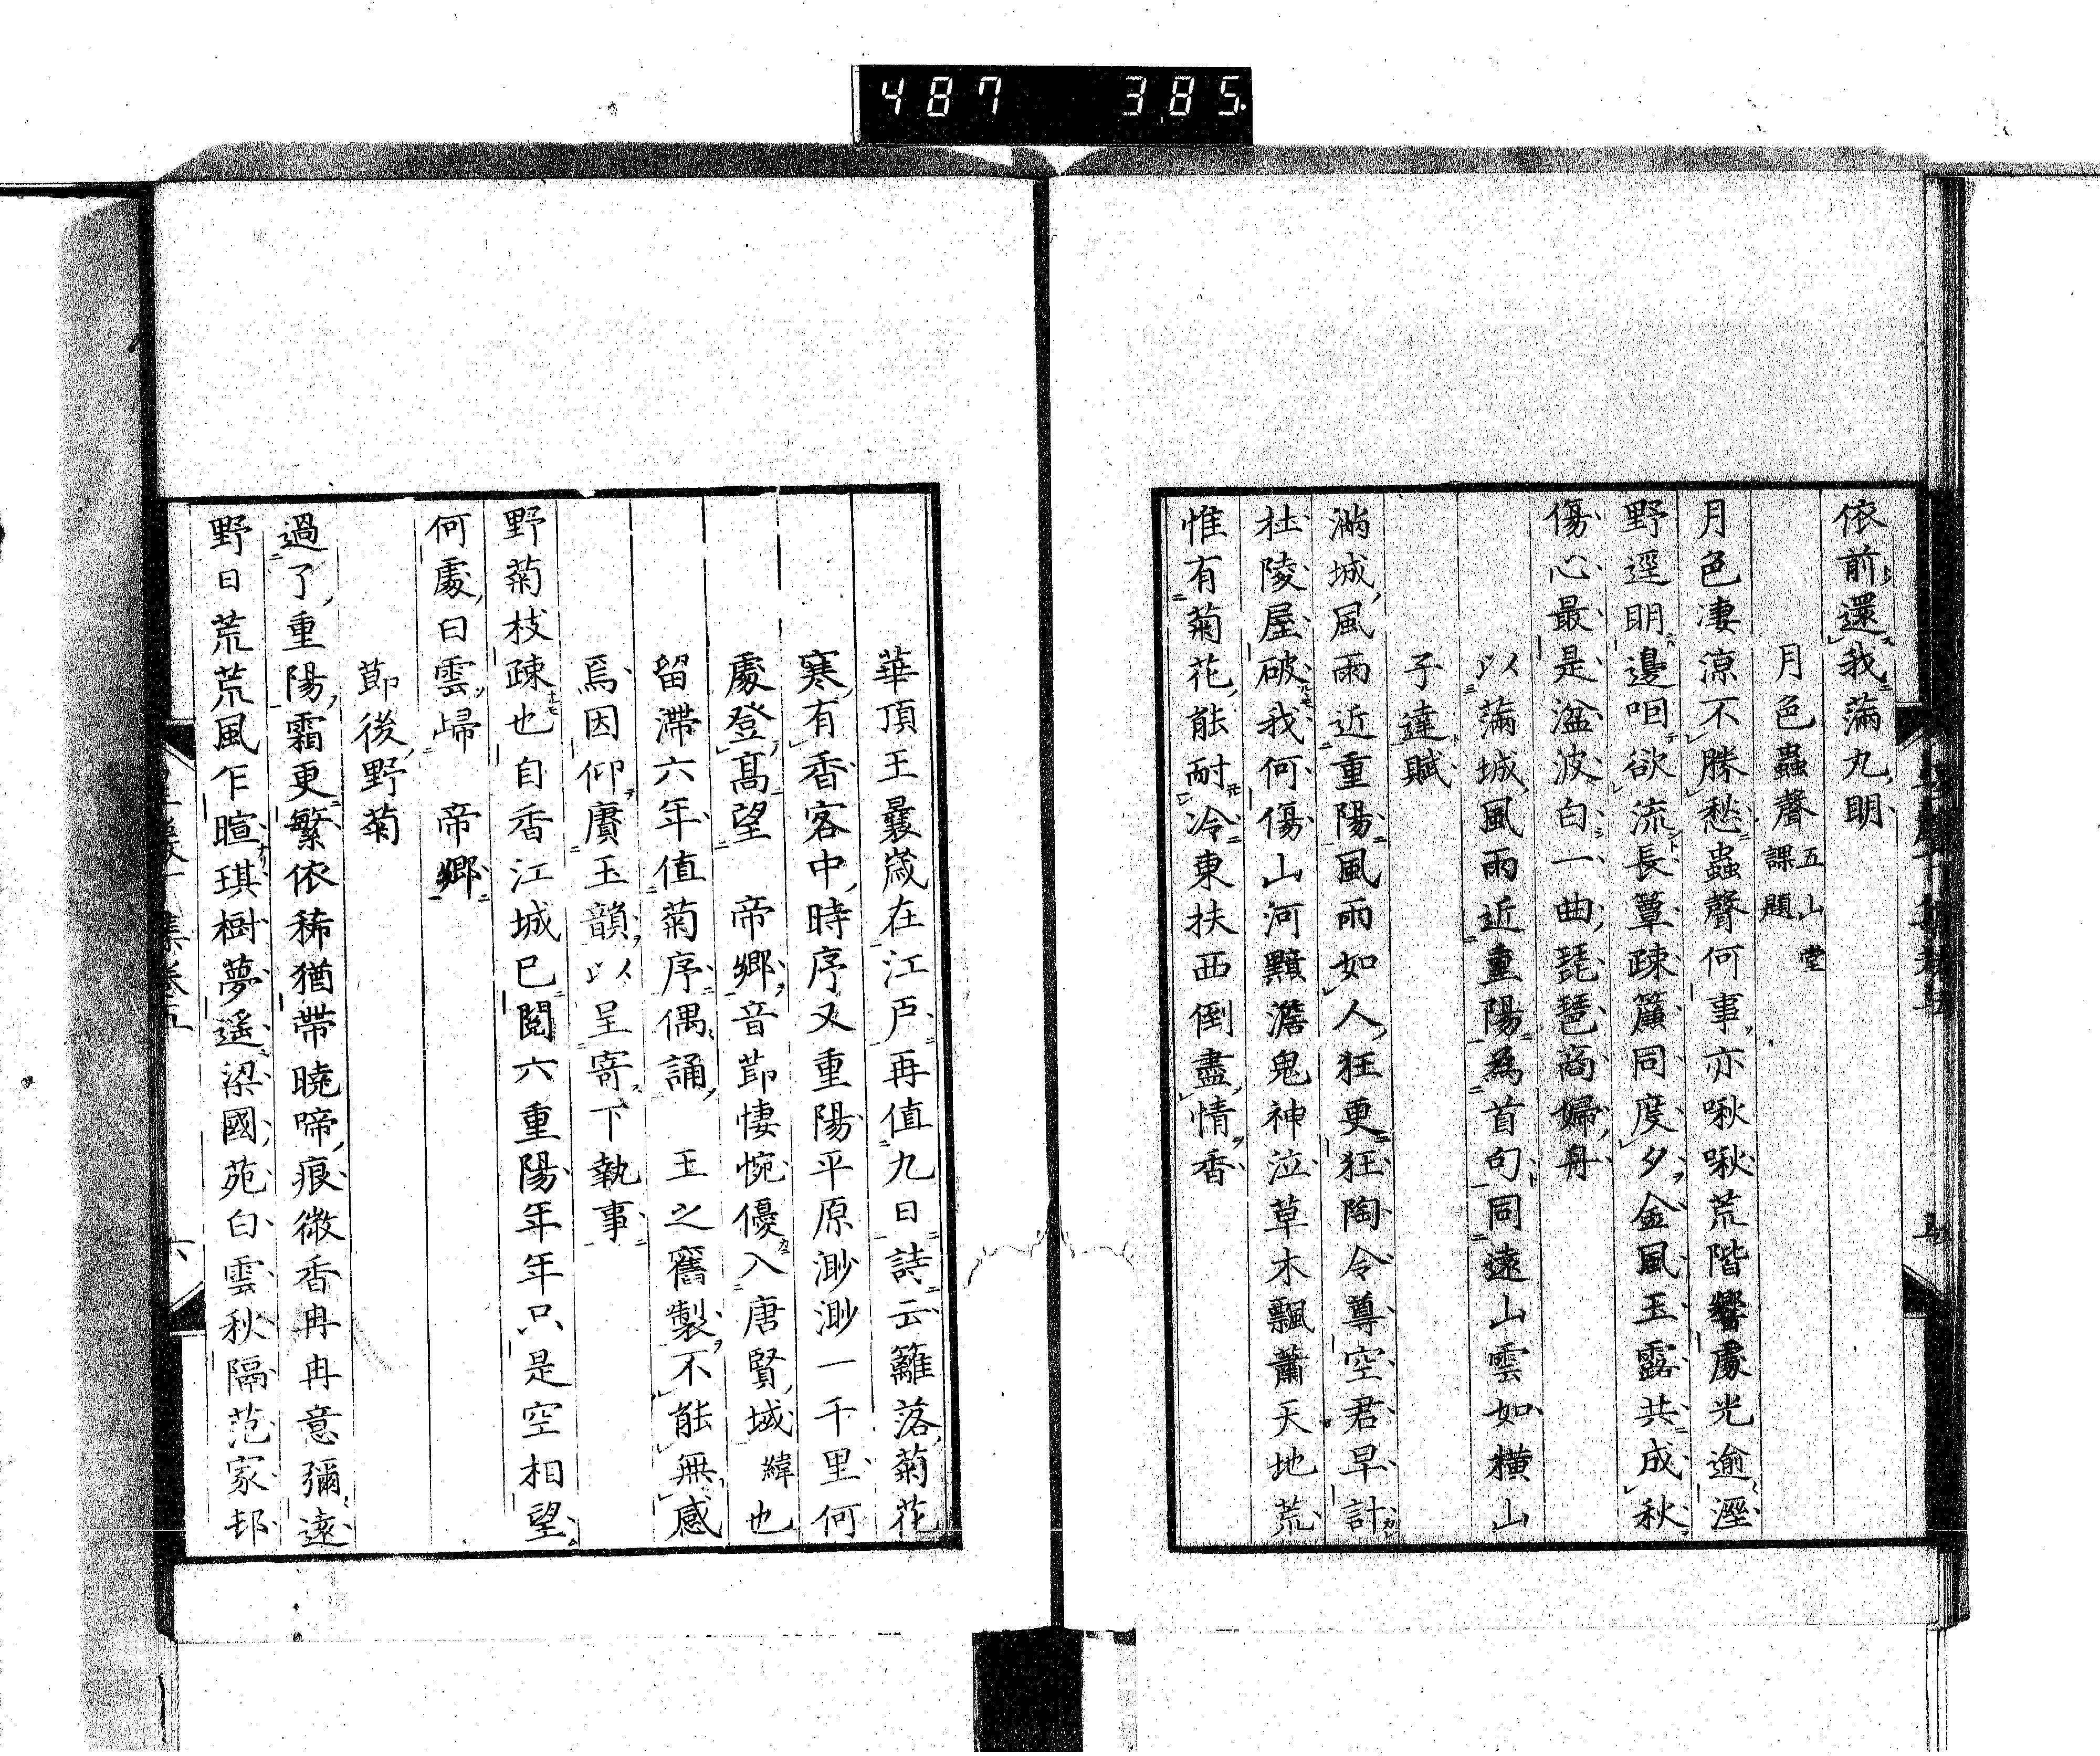 487 385
依前還我滿丸明
月色蟲聲 五山堂課題
月色凄涼不勝愁蟲聲何事亦啾啾荒階響處光逾溼
野逕明邊咽欲流長簟疎簾同度夕金風玉露共成秋
傷心最是湓波白一曲琵琶商婦舟
以滿城風雨近重陽為首句同遠山雲如橫山
子達賦
滿城風雨近重陽風雨如人狂更狂陶令尊空君早計
杜陵屋破我何傷山河黯澹鬼神泣草木飄蕭天地荒
惟有菊花能耐冷東扶西倒盡情香
五
華頂王曩歲在江戶再值九日詩云籬落菊花
寒有香客中時序又重陽平原渺渺一千里何
處登高望 帝鄉音節悽惋優入唐賢域緯也
留滯六年值菊序偶誦 王之舊製不能無感
焉因仰賡玉韻以呈寄下執事
野菊枝疎也自香江城已閱六重陽年年只是空相望
何處白雲歸 帝鄉
節後野菊
過了重陽霜更繁依稀猶帶曉啼痕微香冉冉意彌遠
野日荒荒風乍暄琪樹夢遙梁國苑白雲秋隔范家邨
六